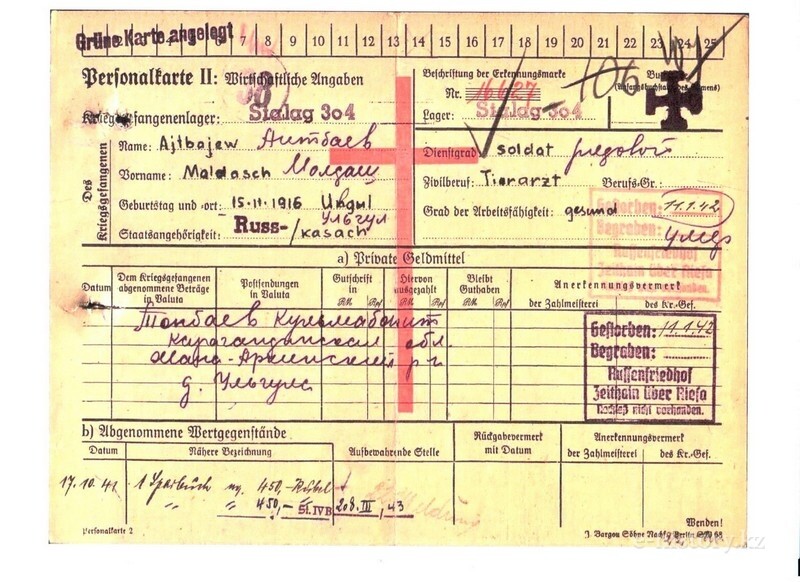 Grüne Karte angelegt
7 8 9 10 11 12 13 14 15 16 17 18 19 20 21 22 23 24 25
Personalkarte II: Wirtschaftliche Angaben
Kriegsgefangenenlager: Stalag 304
Beschriftung der Erkennungsmarke
Nr. 16627 106
Lager: Stalag 304
Des Kriegsgefangenen
Name: Ajtbajew Аитбаев
Vorname: Maldasch Молдаш
Geburtstag und -ort: 15.11.1916 Ungul
Ульгул
Staatsangehörigkeit: Russ-/kasach
Dienstgrad: soldat рядовой
Zivilberuf: Tierarzt Berufs-Gr.:
Grad der Arbeitsfähigkeit: gesund
Gestorben: 11.1.42
Begraben: умер
Russenfriedhof
Zeithain über Riesa
a) Private Geldmittel
Datum
Dem Kriegsgefangenen abgenommene Beträge in Valuta
Postsendungen in Valuta
Gutschrift in RM. Pf
Hiervon ausgezahlt RM. Pf
Bleibt Guthaben RM. Pf
Anerkennungsvermerk
der Zahlmeisterei des Kr.-Gef.
Карагандинская обл.
Жана-Аркинский р-н
д. Ульгуль
Gestorben: 11.1.42
Begraben:
Russenfriedhof
Zeithain über Riesa
Nachlaß nicht vorhanden.
b) Abgenommene Wertgegenstände
Datum
Nähere Bezeichnung
Aufbewahrende Stelle
Rückgabevermerk mit Datum
Anerkennungsvermerk
der Zahlmeisterei des Kr.-Gef.
17.10.41 1 Sparbuch 450,- Rubel
" " 450,- St. IVB 208. III, 43
Wenden!
Personalkarte 2
e-history.kz